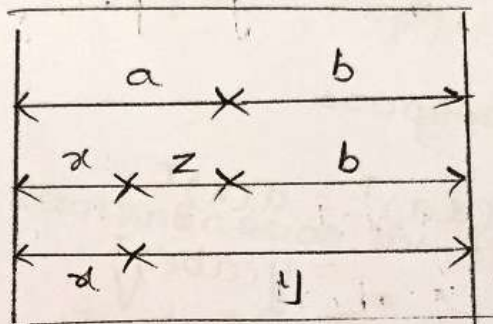 a b
x z b
x y